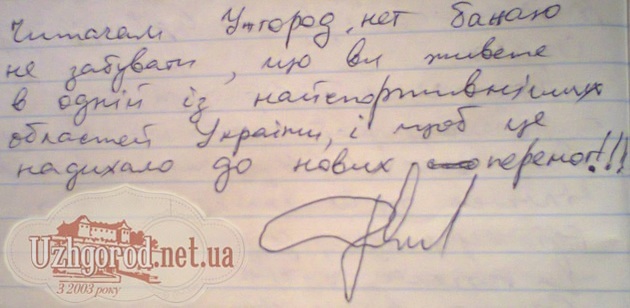 Читачам Ужгород.нет бажаю
не забувати, що ви живете
в одній із найспортивніших
областей України, і щоб це
надихало до нових перемог!!!
Uzhgorod.net.ua
З 2003 року